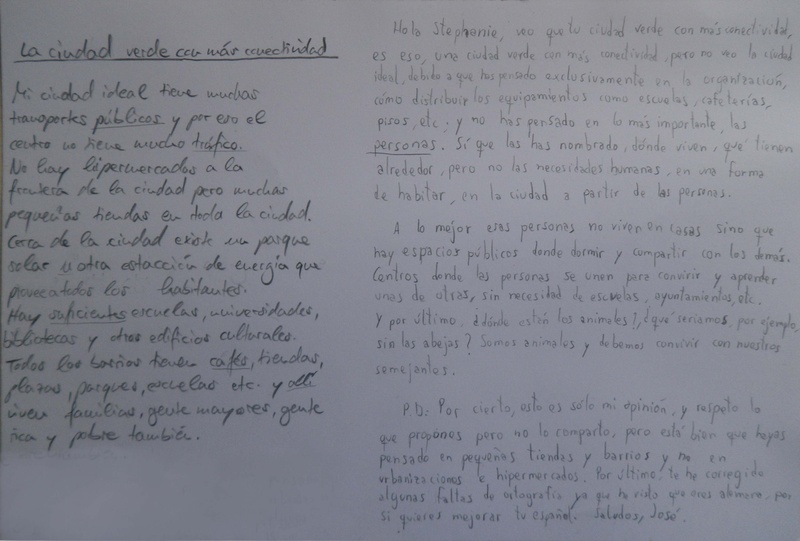 La ciudad verde con más conectividad
Mi ciudad ideal tiene muchas
transportes públicos y por eso el
centro no tiene mucho tráfico.
No hay hipermercados a la
frontera de la ciudad pero muchas
pequeñas tiendas en toda la ciudad.
Cerca de la ciudad existe un parque
solar u otra estacción de energía que
provee a todos los habitantes.
Hay suficientes escuelas, universidades,
bibliotecas y otros edificios culturales.
Todos los barrios tienen cafés, tiendas,
plazas, parques, escuelas etc. y allí
viven familias, gente mayores, gente
rica y pobre también.
Hola Stephanie, veo que tu ciudad verde con más conectividad,
es eso, una ciudad verde con más conectividad, pero no veo la ciudad
ideal, debido a que has pensado exclusivamente en la organización,
cómo distribuir los equipamientos como escuelas, cafeterías,
pisos, etc; y no has pensado en lo más importante, las
personas. Sí que las has nombrado, dónde viven, qué tienen
alrededor, pero no las necesidades humanas, en una forma
de habitar, en la ciudad a partir de las personas.
A lo mejor esas personas no viven en casas sino que
hay espacios públicos donde dormir y compartir con los demás.
Centros donde las personas se unen para convivir y aprender
unas de otras, sin necesidad de escuelas, ayuntamientos, etc.
Y por último, ¿dónde están los animales?, ¿qué seríamos, por ejemplo,
sin las abejas? Somos animales y debemos convivir con nuestros
semejantes.
P.D: Por cierto, esto es sólo mi opinión, y respeto lo
que propones pero no lo comparto, pero está bien que hayas
pensado en pequeñas tiendas y barrios y no en
urbanizaciones e hipermercados. Por último, te he corregido
algunas faltas de ortografía ya que he visto que eres alemana, por
si quieres mejorar tu español. Saludos, José.